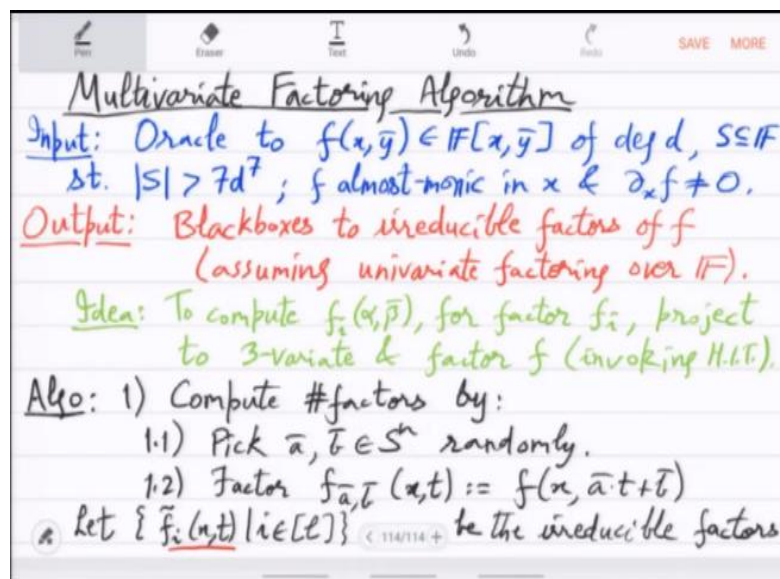 Pen Eraser Text Undo Redo SAVE MORE
Multivariate Factoring Algorithm
Input: Oracle to f(x,ȳ) ∈ 𝔽[x,ȳ] of deg d, S⊆𝔽
st. |S| > 7d⁷ ; f almost-monic in x & ∂ₓf ≠ 0.
Output: Blackboxes to irreducible factors of f
(assuming univariate factoring over 𝔽).
Idea: To compute fᵢ(α,β̄), for factor fᵢ, project
to 3-variate & factor f (invoking H.I.T.).
Algo: 1) Compute #factors by:
1.1) Pick ā, b̄ ∈ Sⁿ randomly.
1.2) Factor f_{ā,b̄} (x,t) := f(x, ā·t+b̄)
Let { f̃ᵢ(x,t) | i∈[ℓ]} < 114/114 + be the irreducible factors